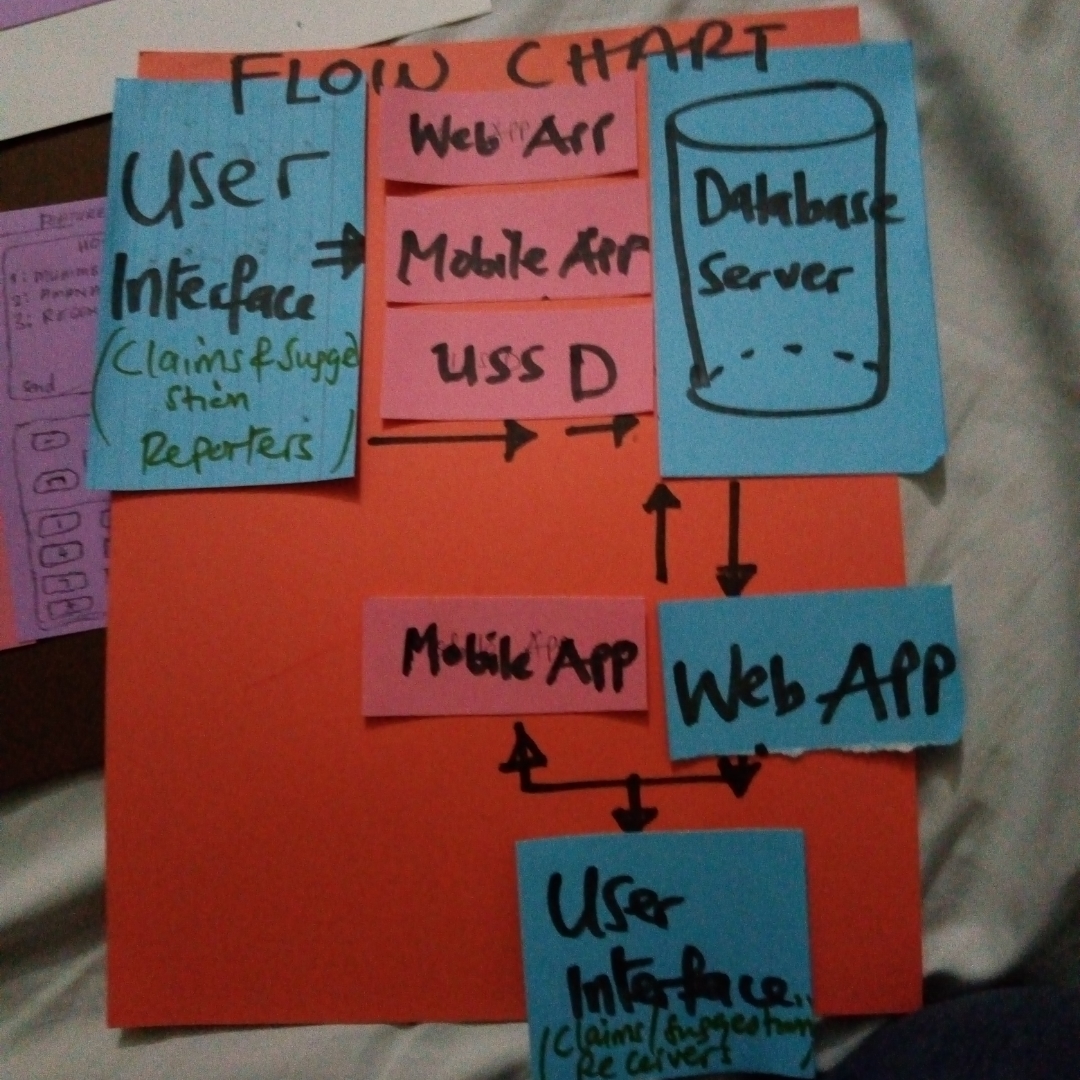 FLOW CHART
User
Interface
(Claims & Sugge
stion
Reporters)
Web App
Mobile App
USSD
Database
Server
Mobile App
Web App
User
Interface..
(Claims/Suggestions)
Receivers
FEATURE
HO
1:
2:
3:
Send